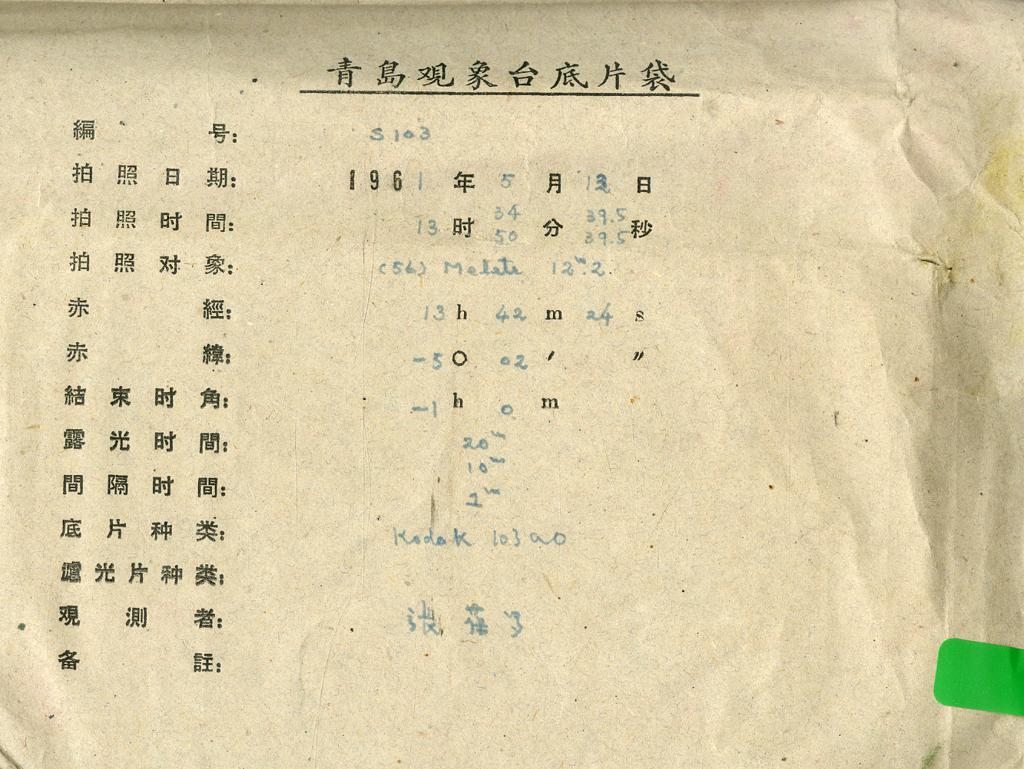 青島观象台底片袋
編号: S103
拍照日期: 1961年5月13日
拍照时間: 13时 34 50 分 39.5 39.5 秒
拍照对象: (56) Melete 12ᵐ.2
赤經: 13h 42m 24s
赤緯: -5° 02′ ″
結束时角: -1h 0m
露光时間: 20ᵐ
10ᵐ
間隔时間: 2ᵐ
底片种类: Kodak 103aO
濾光片种类:
观測者: 张
备註: